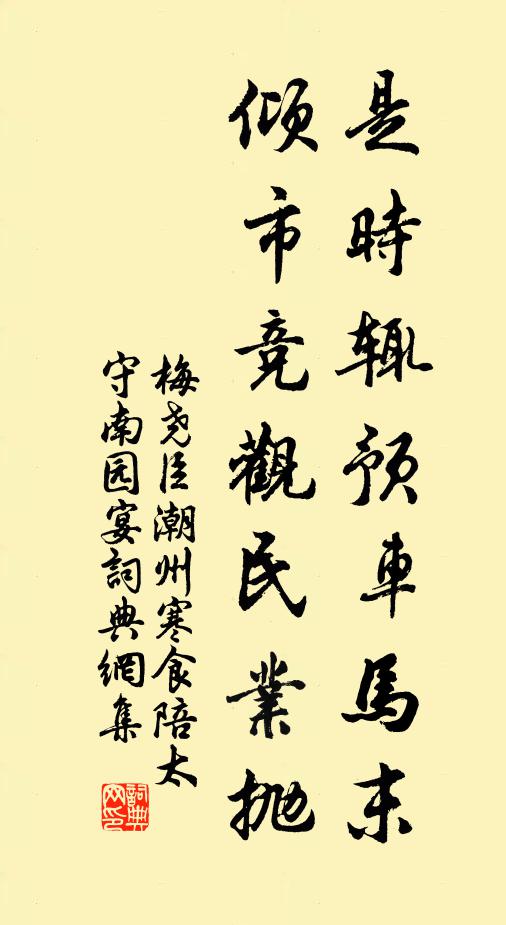 是時輒預車馬末
傾市竞觀民業抛
梅尧臣潮州寒食陪太
守南园宴詞典網集
詞典網印